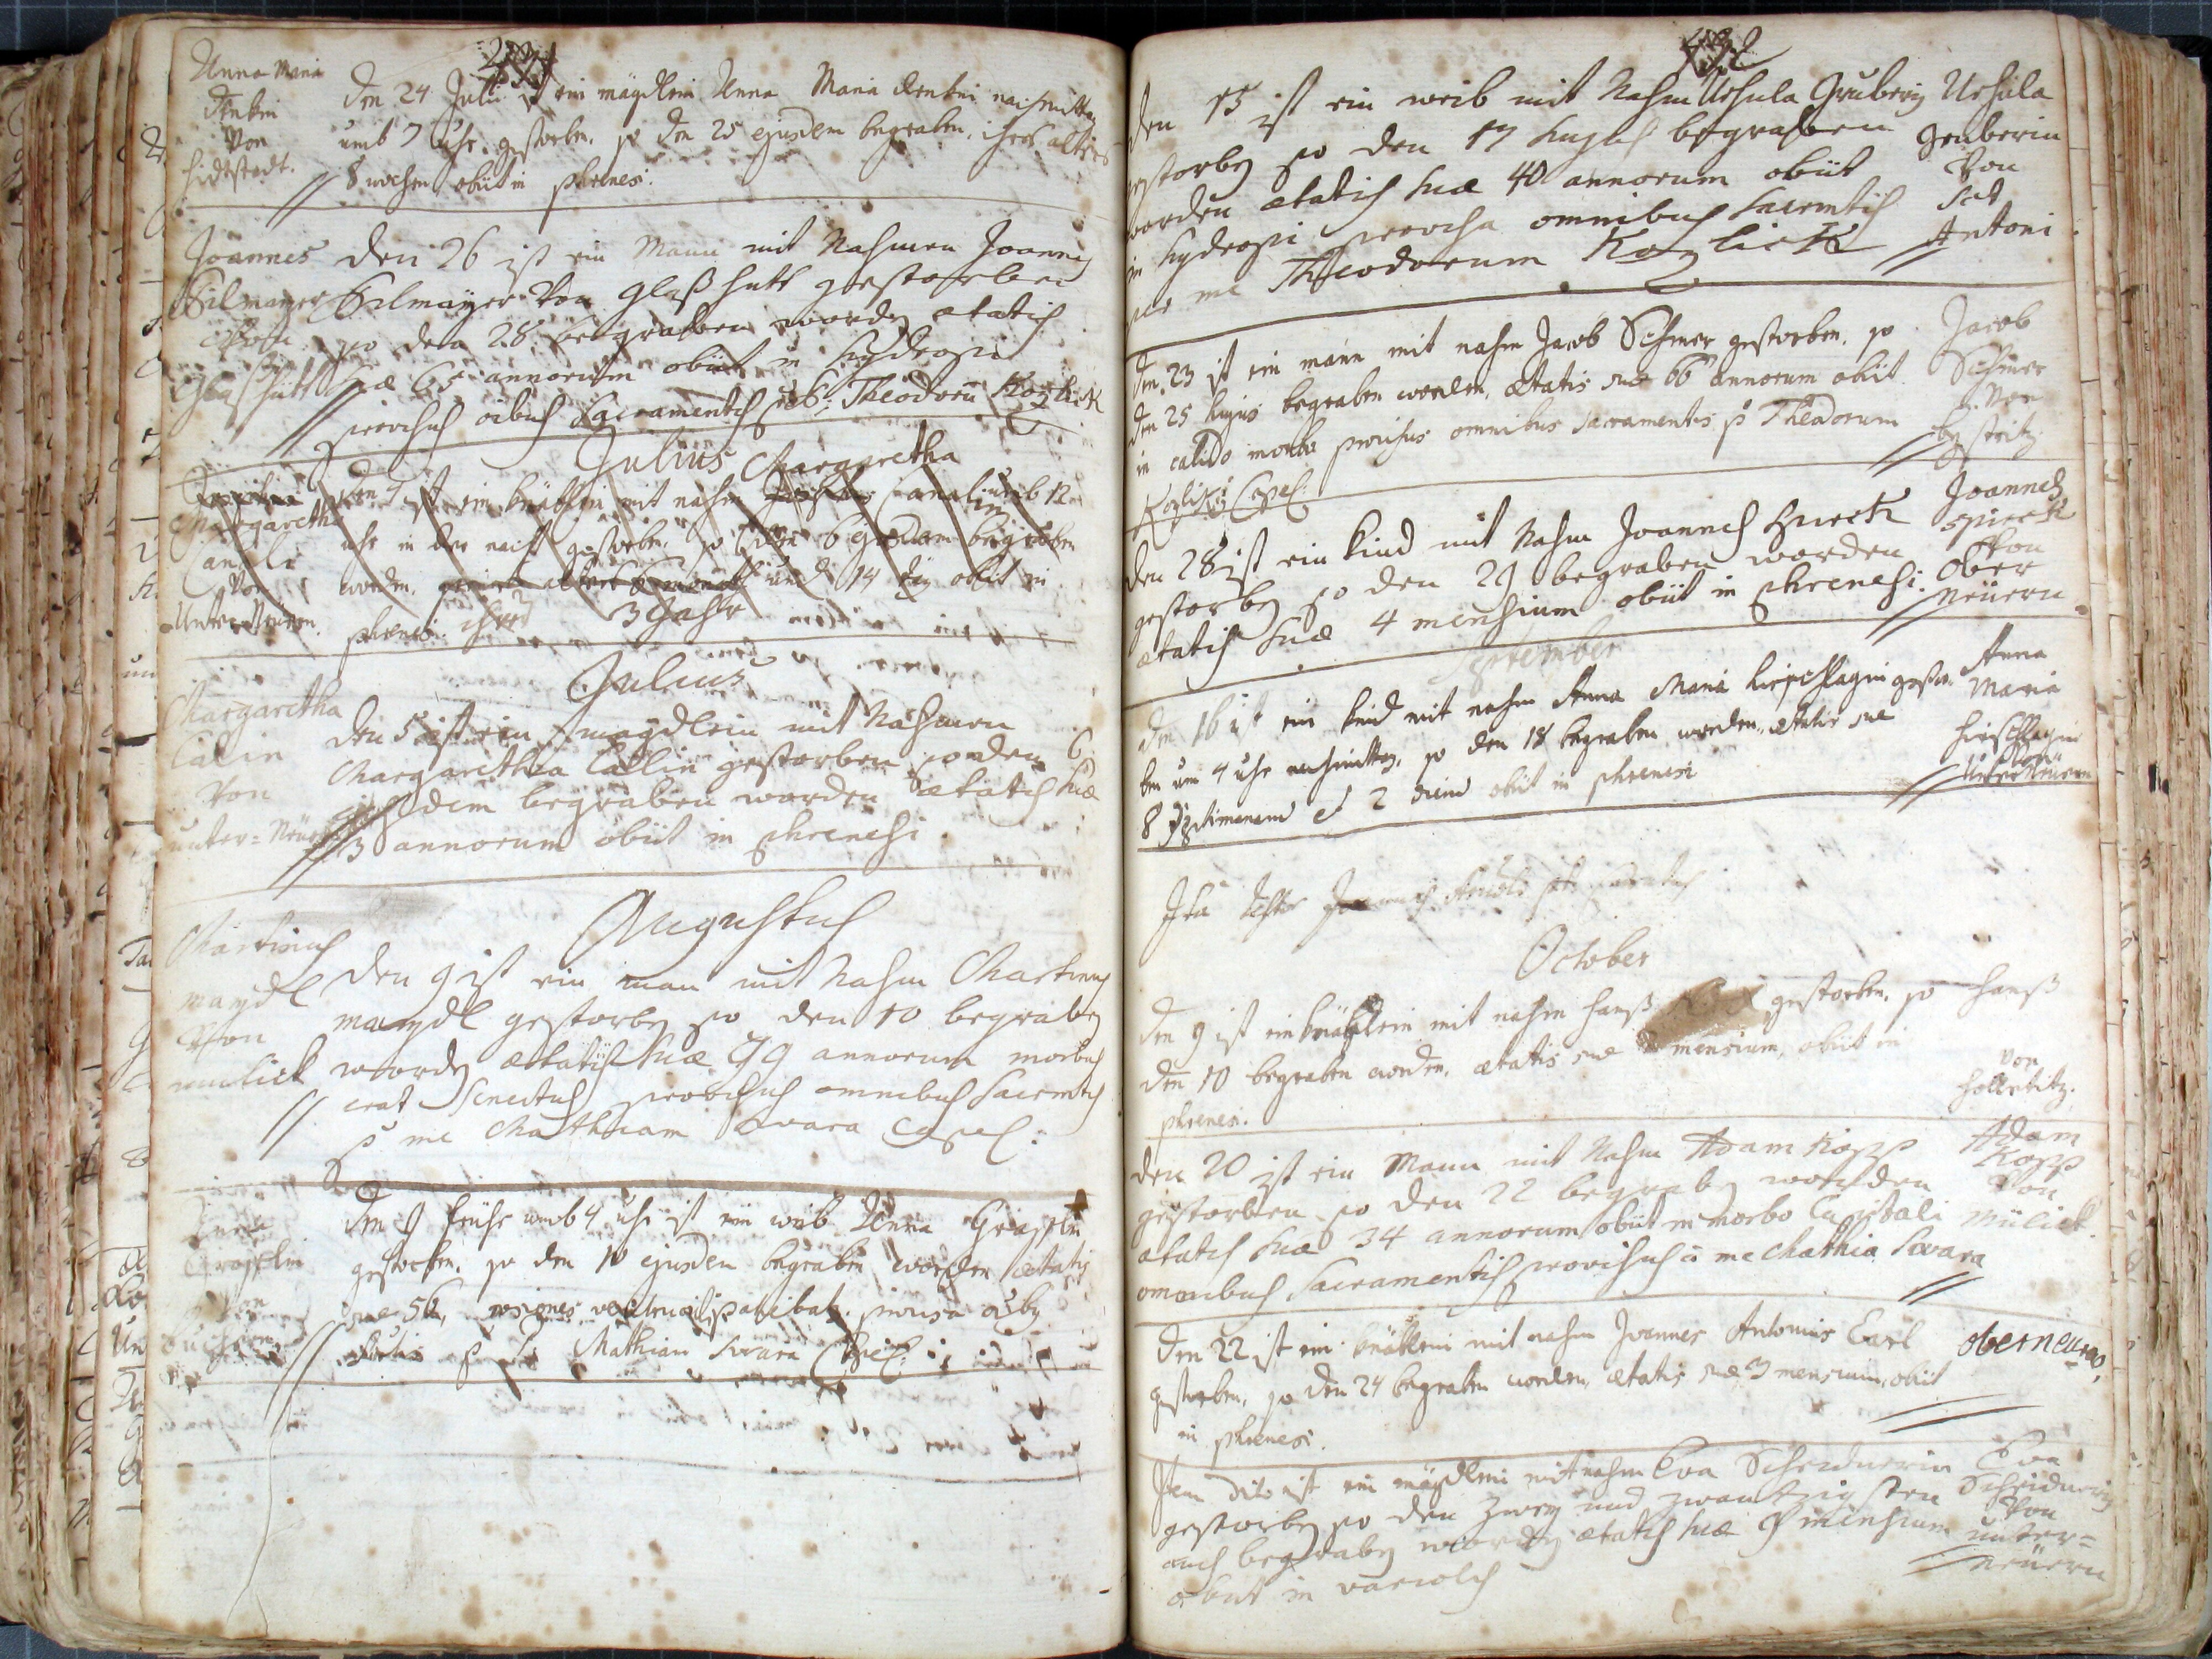 Anna Maria
Von
Den 24 Julii ist ein mägdlein Anna Maria nachmittag
umb 7 Uhr gestorben, so den 25 ejusdem begraben, ihres alters
8 wochen obiit in phrenesi.
Joannes
Silmayer
Von
Glaßhütt
den 26 ist ein Mann mit Nahmen Joannes
Silmayer Von Glaßhutt gestorben
so den 28 begraben worden ætatis
suæ 65 annorum obiit in hydropi
provisus oibus Sacramentis Theodorū Kozlick
Julius
Margaretha
Margaretha
Canali
Von
Unter Neuern
den 5 ist ein knäblein mit nahm Canali umb 12
uhr in der nacht gestorben, so den 6 ejusdem begraben
worden, und 14 tag obiit in
phrenesi. ihres 3 Jahr
Julius
Margaretha
Calin
Von
unter=Neuern
den 5 ist ein magdlein mit Nahmen
Margaretha Callin gestorben so den 6
ejusdem begraben worden ætatis suæ
3 annorum obiit in phrenesi
Augustus
Martinus
maydl
Von
mulick
den 9 ist ein man mit Nahm Martinus
maydl gestorben so den 10 begraben
worden ætatis suæ 99 annorum morbus
erat Senectus provisus omnibus Sacrmtis
p me Mathiam Swara Capel:
Anna
Grafflin
Von
den 9 frühe umb 4 uhr ist ein weib Anna Grafflin
gestorben, so den 10 ejusdem begraben worden ætatis
suæ 56, provisa oibus
Mathiam Swara Capel:
den 15 ist ein weib mit Nahm Ursula Gruberin
gestorben so den 17 hujus begraben
worden ætatis suæ 40 annorum obiit
in hydropi provisa omnibus sacrmtis
per me Theodorum Kozlick
Ursula
Gruberin
Von
Sct
Antoni
Den 23 ist ein mann mit nahm Jacob Schmer gestorben, so
den 25 hujus begraben worden, ætatis suæ 66 annorum obiit
in calido morbo provisus omnibus sacramentis p Theodorum
Kozlick Capel:
Jacob
Schmer
Von
bystritz
den 28 ist ein kind mit Nahm Joannes Spirck
gestorben so den 29 begraben worden
ætatis suæ 4 mensium obiit in phrenesi.
Joannes
Spirck
Von
Ober
Neüern
September
Den 16 ist ein kind mit nahm Anna Maria hirschlagin gestor-
ben um 4 uhr nachmittag, so den 18 begraben worden, ætatis suæ
8 Septimanarum et 2 dierum obiit in phrenesi
Anna
Maria
hirschlagin
Von
Unter Neuern
October
Den 9 ist ein knäblein mit nahm hanß gestorben, so
den 10 begraben worden, ætatis suæ mensium, obiit in
phrenesi.
hanß
Von
holletitz.
den 20 ist ein Mann mit Nahm Adam Kopp
gestorben so den 22 begraben worden
ætatis suæ 34 annorum obiit in morbo Capitali
omnibus Sacramentis provisus à me Mathia Swara
Adam
Kopp
Von
Mülick
Den 22 ist ein knäblein mit nahm Joannes Antonius Carl
gestorben, so den 24 begraben worden, ætatis suæ 3 mensium, obiit
in phrenesi.
oberneuern
Item dito ist ein mägdlein mit nahm Eva Schneiderin
gestorben so den zwey und zwantzigsten
auch begraben worden ætatis suæ 9 mensium
obiit in variolis
Eva
Schneiderin
Von
unter=
Neüern